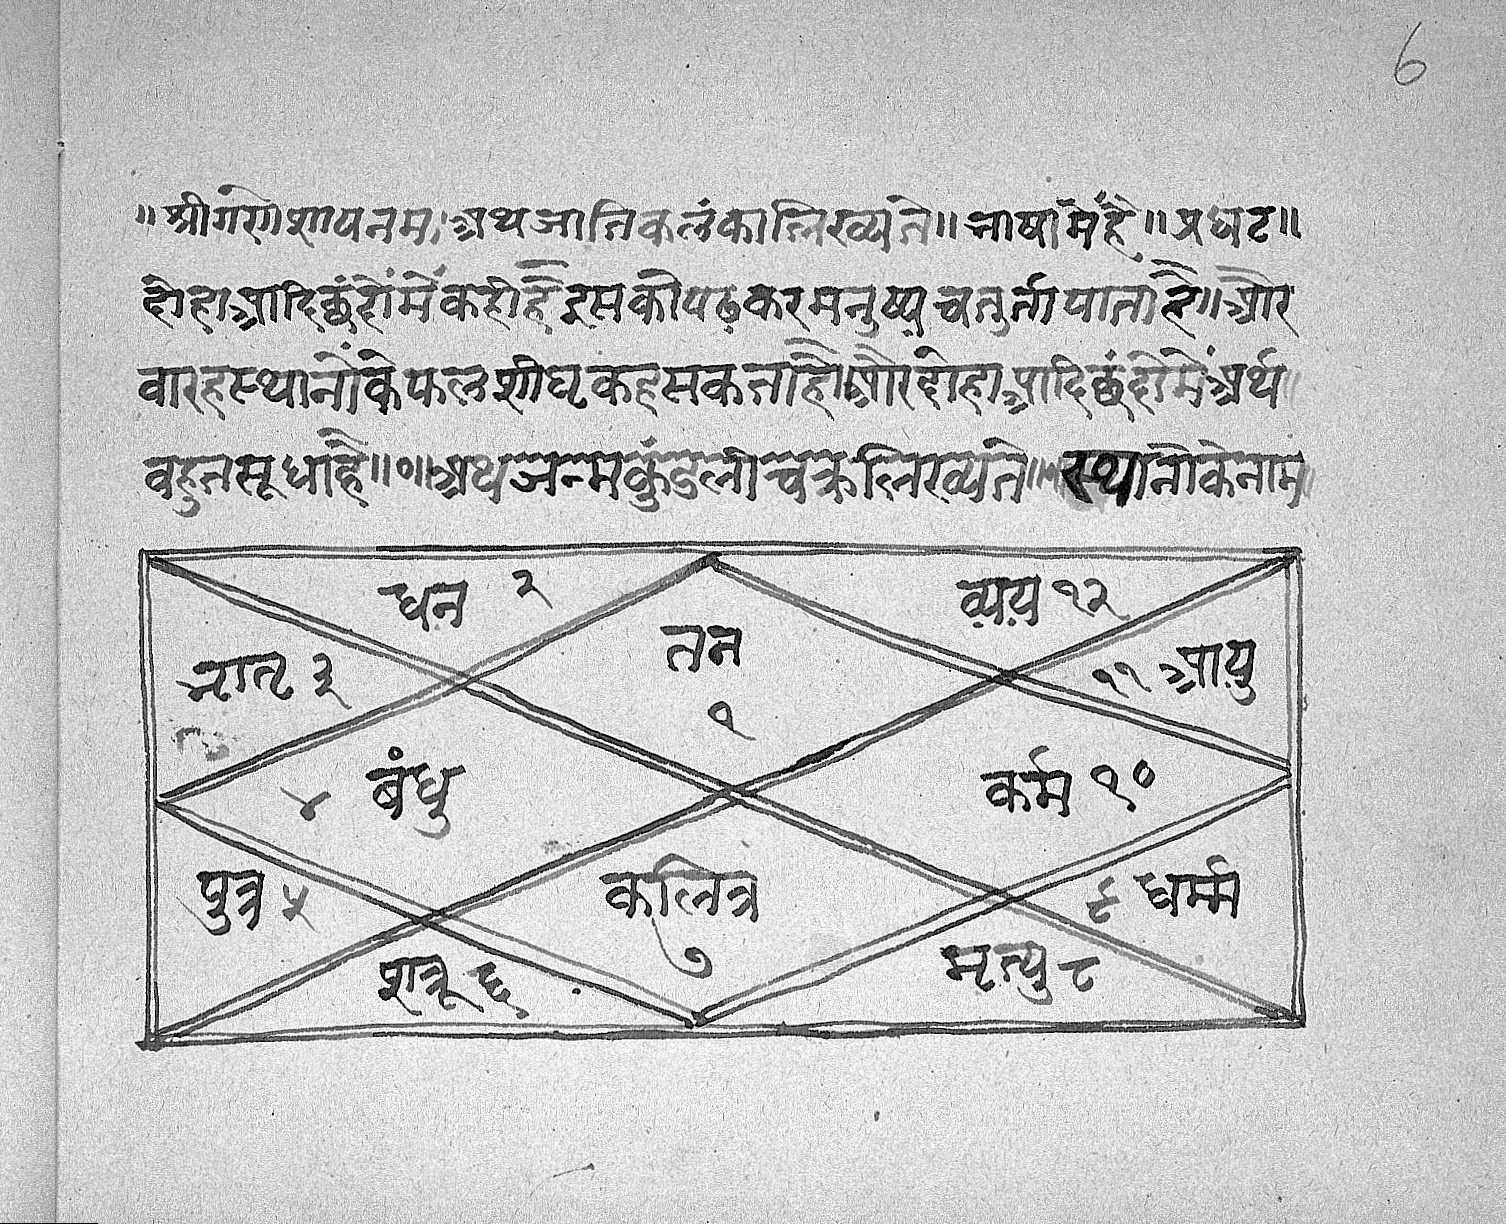 6
॥श्रीगणेशायनमः अथजातिकलंकालिख्यते॥ भाषामेंहै॥ प्रघट॥
दोहाआदिछंदोंमेंकहीहैइसकोपढकरमनुष्यचतुर्तापाताहै॥और
वारहस्थानोंकेफलशीघ्रकहसकताहै॥औरदोहाआदिछंदोंमेंअर्थ
वहुतसूधाहै॥०॥अथजन्मकुंडलीचक्रलिख्यते॥स्थानोकेनाम
धन २
व्यय १२
तन
१
भ्रातृ ३
११ आयु
४ बंधु
कर्म १०
पुत्र ५
कलित्र
७
९ धर्म्म
शत्रू ६
मृत्यु ८